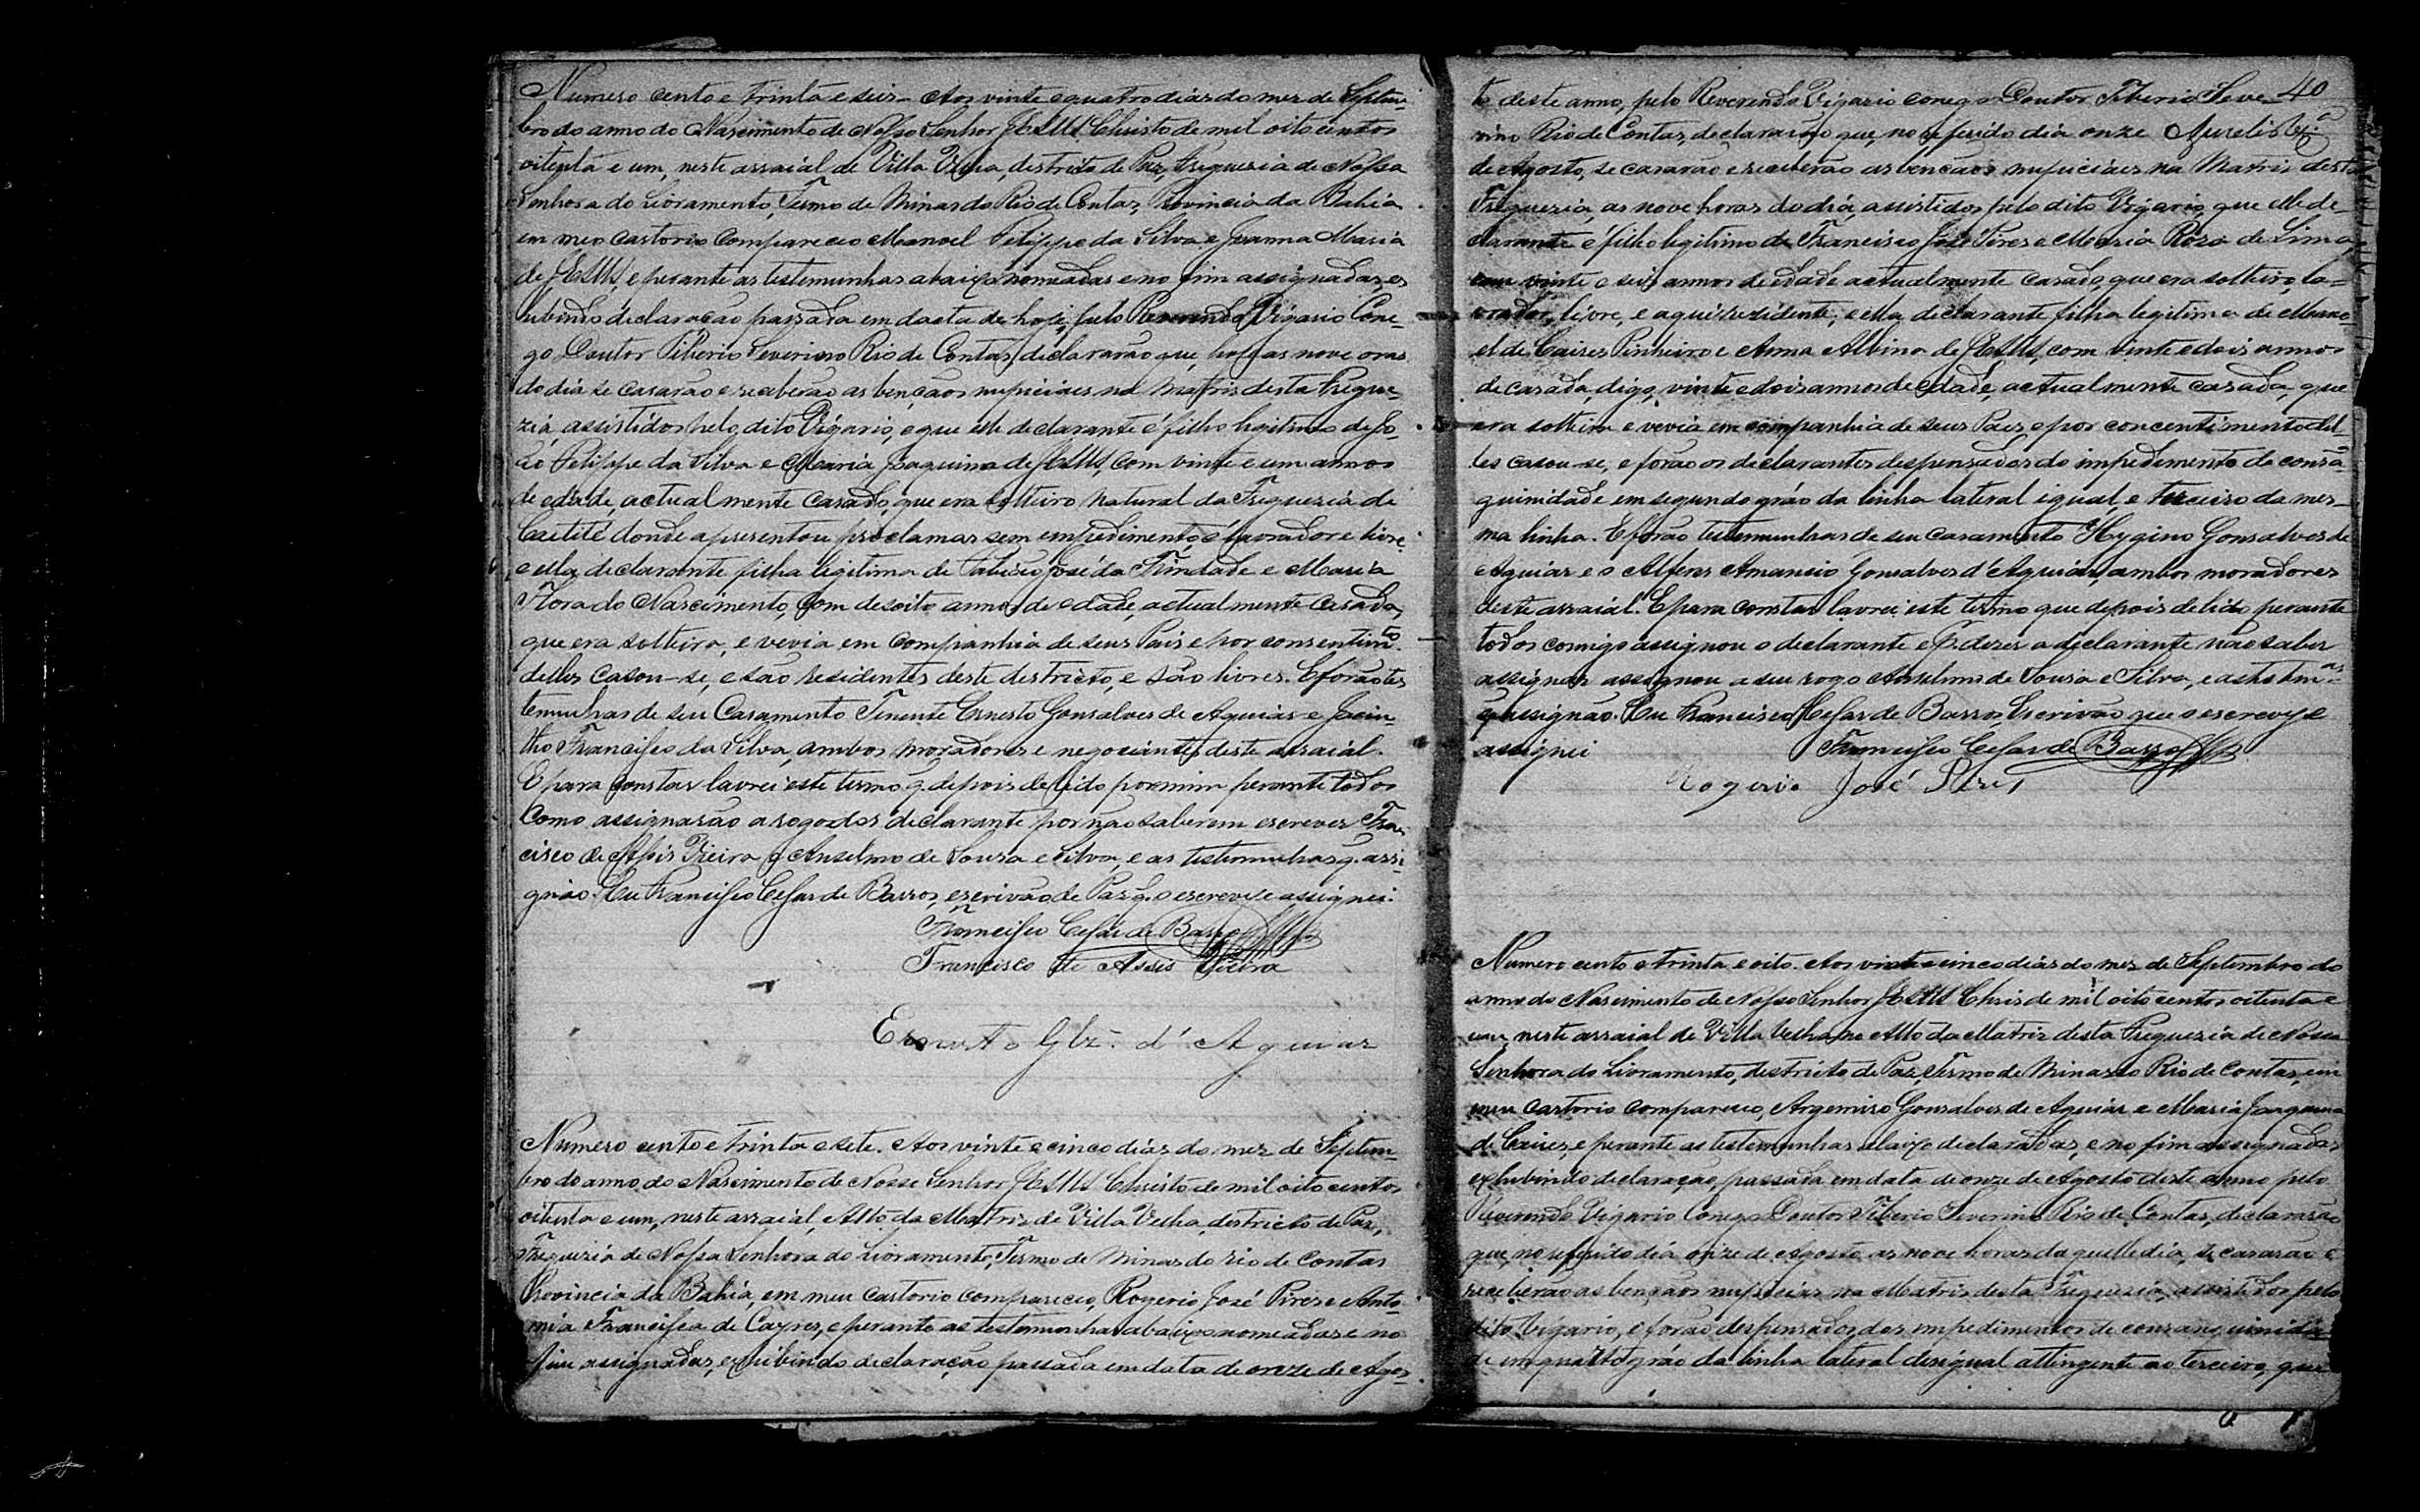 Numero cento e trinta e seis - Aos vinte e quatro dias do mez de Septem-
bro do anno do Nascimento de Nosso Senhor JESUS Christo de mil oito centos
oitenta e um, neste arraial de Villa Velha, destricto de Paz, Freguezia de Nossa
Senhora do Livramento, Termo de Minas do Rio de Contas, Provincia da Bahia
em meo cartorio compareceo Manoel Felippe da Silva, e Joanna Maria
de JESUS, e perante as testemunhas abaixo nomeadas e no fim assignadas, ex
hibindo declaração passada em dacta de hoje, pelo Reverendo Vigario Cone-
go Doutor Tiberio Severino Rio de Contas, declararão que, hoje as nove oras
do dia se casarão e receberão as bençãos nupiciaes na Matris desta Fregue-
zia, assistidos pelo dito Vigario, e que elle declarante é filho ligitimo de Jo-
ão Felippe da Silva e Maria Joaquina de JESUS, com vinte e um annos
de edade, actualmente casado, que era solteiro natural da Freguezia de
Caetité donde apresentou proclamas sem empedimento, é lavrador e livre,
e ella declarante filha legitima de José da Trindade e Maria
Flora do Nascimento, com desoito annos de edade, actualmente casada,
que era solteira, e vevia em companhia de seus Pais e por consentimto.
delles casou-se, e são residentes deste destricto, e são livres. E forão tes
temunhas de seu Casamento Tenente Ernesto Gonsalves de Aguiar e Jacin-
tho Francisco da Silva, ambos moradores e negociantes deste arraial.
E para constar lavrei este termo q. depois de lido por mim perante todos
como assignarão a rogo dos declarante por não saberem escrever Fran-
cisco de Assis Vieira e Anselmo de Sousa e Silva, e as testemunhas q. assi-
gnão. Eu Francisco Cesar de Barros, escrivão de Paz q. o escrevi e assignei.
Francisco Cesar de Barros
Francisco de Assis Vieira
Ernesto Glz. d' Aguiar
Numero cento e trinta e sete. Aos vinte e cinco dias do mez de Septem-
bro do anno do Nascimento de Nosso Senhor JESUS Christo de mil oito centos
oitenta e um, neste arraial, Alto da Matris de Villa Velha, destricto de Paz,
Freguezia de Nossa Senhora do Livramento, Termo de Minas do rio de Contas
Provincia da Bahia, em meu cartorio compareceo, Rogerio José Pires e Anto-
nia Francisca de Cayres, e perante as testemunhas abaixo nomeadas e no
fim assignadas, exhibindo declaração passada em data de onze de Agos-
40
to deste anno, pelo Reverendo Vigario conego Doutor Tiberio Seve-
rino Rio de Contas, declararão que, no referido dia onze
de Agosto, se casarão e receberão as bençãos nupiciaes na Matris desta
Freguezia, as nove horas do dia, assistidos pelo dito Vigario, que elle de-
clarante é filho legitimo de Francisco José Pires e Maria Roza de Lima,
com vinte e seis annos de edade actualmente casado, que era solteiro, la-
vrador, livre, e aqui rezidente; e ella declarante filha legitima de Mano-
el de Caires Pinheiro e Anna Albina de JESUS, com vinte e dois annos
de casada, digo, vinte e dois annos de edade, actualmente casada, que
era solteira e vevia em companhia de seus Paes e por concentimento del-
les casou-se, e forão os declarantes despensados do impedimento de consã
guinidade em segundo gráo da linha lateral igual, e terceiro da mes-
ma linha. E forão testemunhas de seu casamento Hygino Gonsalves de
Aguiar e o Alferes Amancio Gonsalves d'Aguiar, ambos moradores
deste arraial. E para constar lavrei este termo que depois de lido perante
todos comigo assignou o declarante e p. dizer a declarante não saber
assignar assignou a seu rogo Anselmo de Sousa e Silva, e as testem.as
q assignão. Eu Francisco Cesar de Barros Escrivão que o escrevy e
assignei
Francisco Cesar de Barros
Rogerio José Pires
Numero cento e trinta e oito. Aos vinte e cinco dias do mez de Septembro do
anno do Nascimento de Nosso Senhor JESUS Chris de mil oito centos oitenta e
um, neste arraial de Villa Velha, no Alto da Matriz desta Freguezia de Nossa
Senhora do Livramento, destricto de Paz, Termo de Minas do Rio de Contas, em
meu cartorio compareceo, Argemiro Gonsalves de Aguiar e Maria Joaquina
de Caires, e perante as testemunhas abaixo declaradas, e no fim assignadas
exhibindo declaração, passada em data de onze de Agosto deste anno pelo
Reverendo Vigario Conego Doutor Tiberio Severino Rio de Contas, declararão
que, no referido dia onze de Agosto, as nove horas daquelle dia, se casarão e
receberão as bençãos nupiciaes na Matris desta Freguezia, assistidos pelo
dito Vigario, e forão despensados dos impedimentos de consanguinida-
de em quarto gráo da linha lateral desigual attingente ao terceiro, que